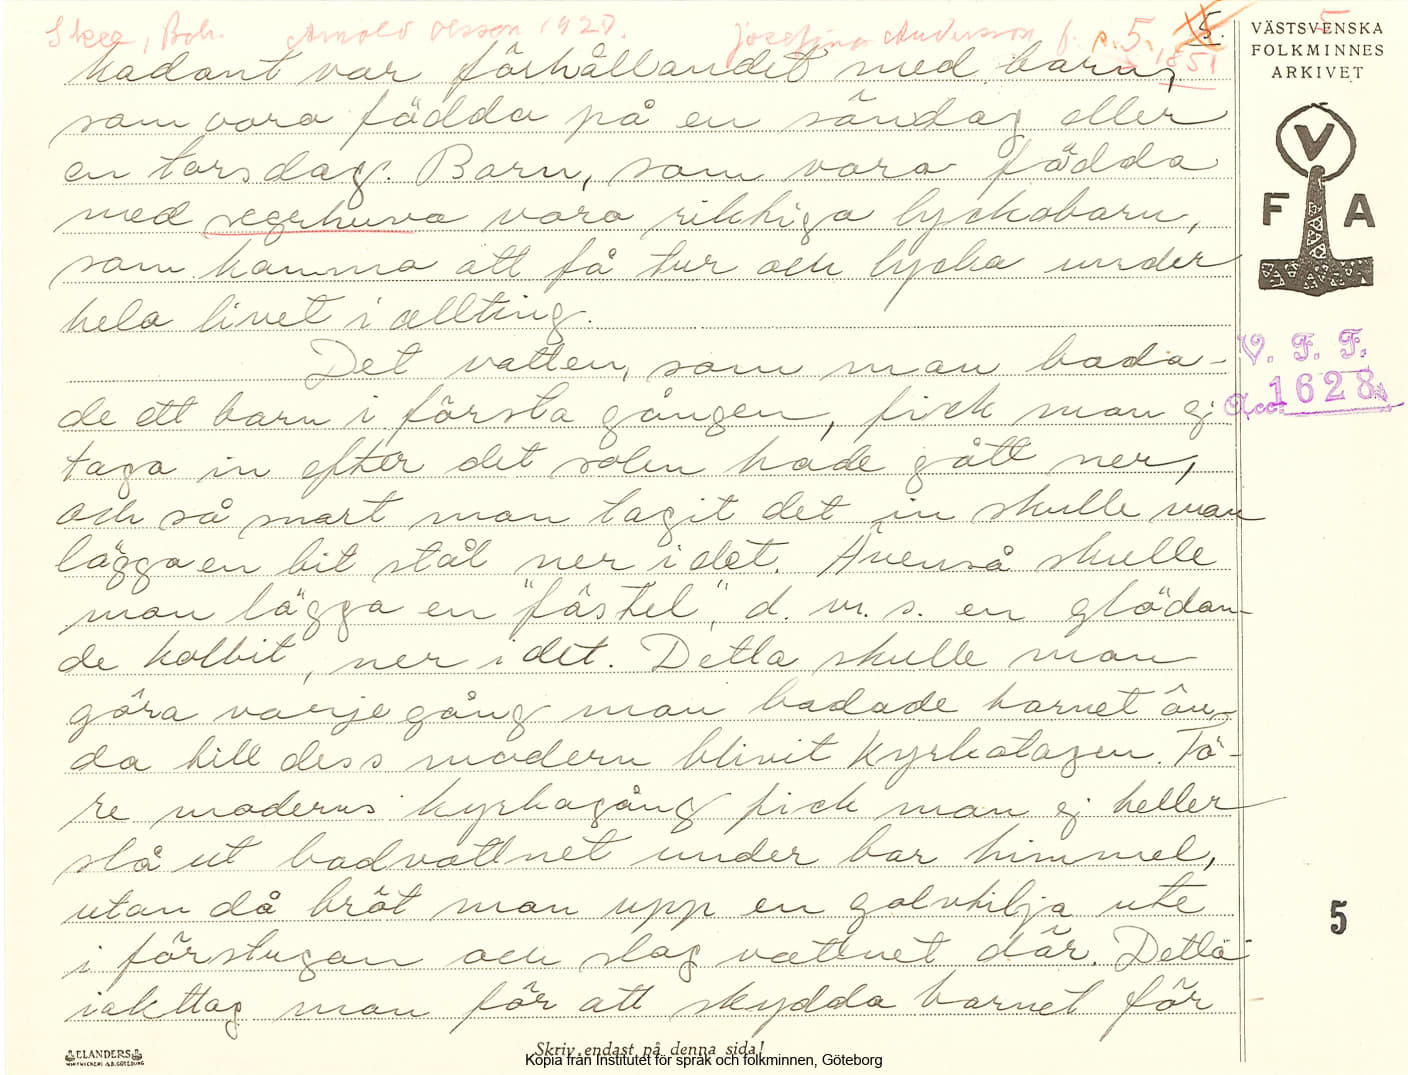 Skee, Boh. Arnold Olsson 1927. Josefina Andersson f. 1851
p. 5.
5.
5
VÄSTSVENSKA
FOLKMINNES
ARKIVET
V
F A
V. F. F.
Acc. 1628
kadant var förhållandet med barn,
som voro födda på en söndag eller
en torsdag. Barn, som voro födda
med segerhuva voro riktiga lyckobarn,
som kommo att få tur och lycka under
hela livet i allting.
Det vatten, som man bada-
de ett barn i första gången, fick man ej
taga in efter det solen hade gått ner,
och så snart man tagit det in skulle man
lägga en bit stål ner i det. Ävenså skulle
man lägga en "fästel", d. v. s. en glödan-
de kolbit, ner i det. Detta skulle man
göra varje gång man badade barnet än-
da till dess modern blivit kyrkotagen. Fö-
re moderns kyrkogång fick man ej heller
slå ut badvattnet under bar himmel,
utan då bröt man upp en golvtilja ute
i förstugan och slog vattnet där. Detta
iakttog man för att skydda barnet för
5
ELANDERS
Skriv endast på denna sida!
Kopia från Institutet för språk och folkminnen, Göteborg